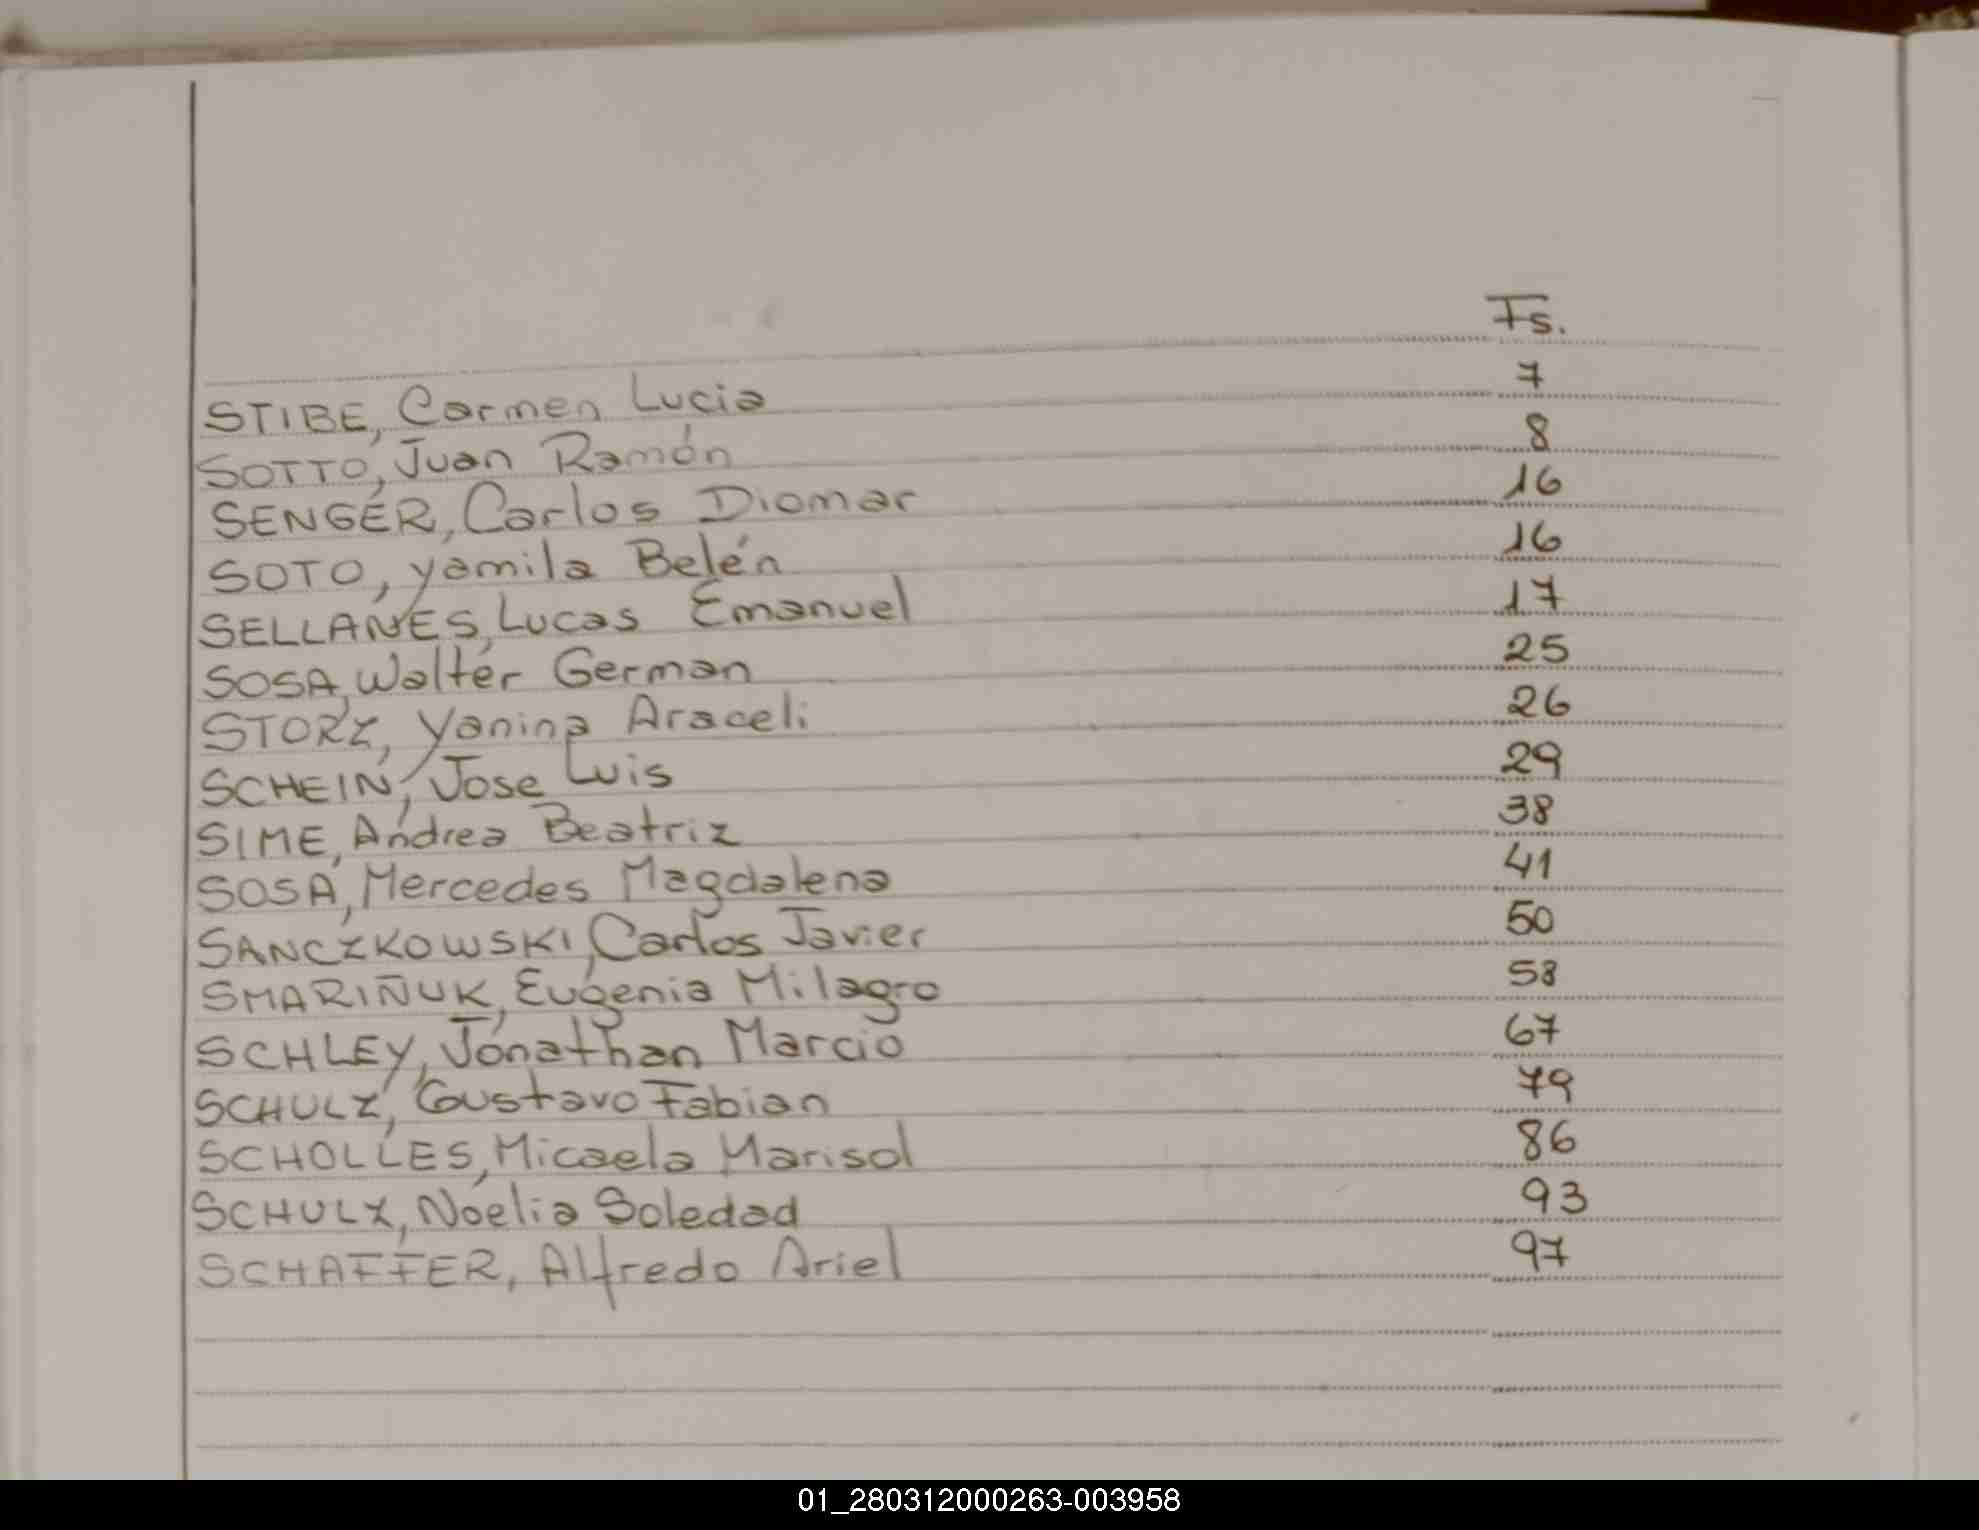 Fs.
STIBE, Carmen Lucia 7
SOTTO, Juan Ramón 8
SENGER, Carlos Diomar 16
SOTO, Yamila Belén 16
SELLANES, Lucas Emanuel 17
SOSA, Walter German 25
STORZ, Yanina Araceli 26
SCHEIN, Jose Luis 29
SIME, Andrea Beatriz 38
SOSA, Mercedes Magdalena 41
SANCZKOWSKI, Carlos Javier 50
SMARIÑUK, Eugenia Milagro 58
SCHLEY, Jonathan Marcio 67
SCHULZ, Gustavo Fabian 79
SCHOLLES, Micaela Marisol 86
SCHULZ, Noelia Soledad 93
SCHAFFER, Alfredo Ariel 97
01_280312000263-003958